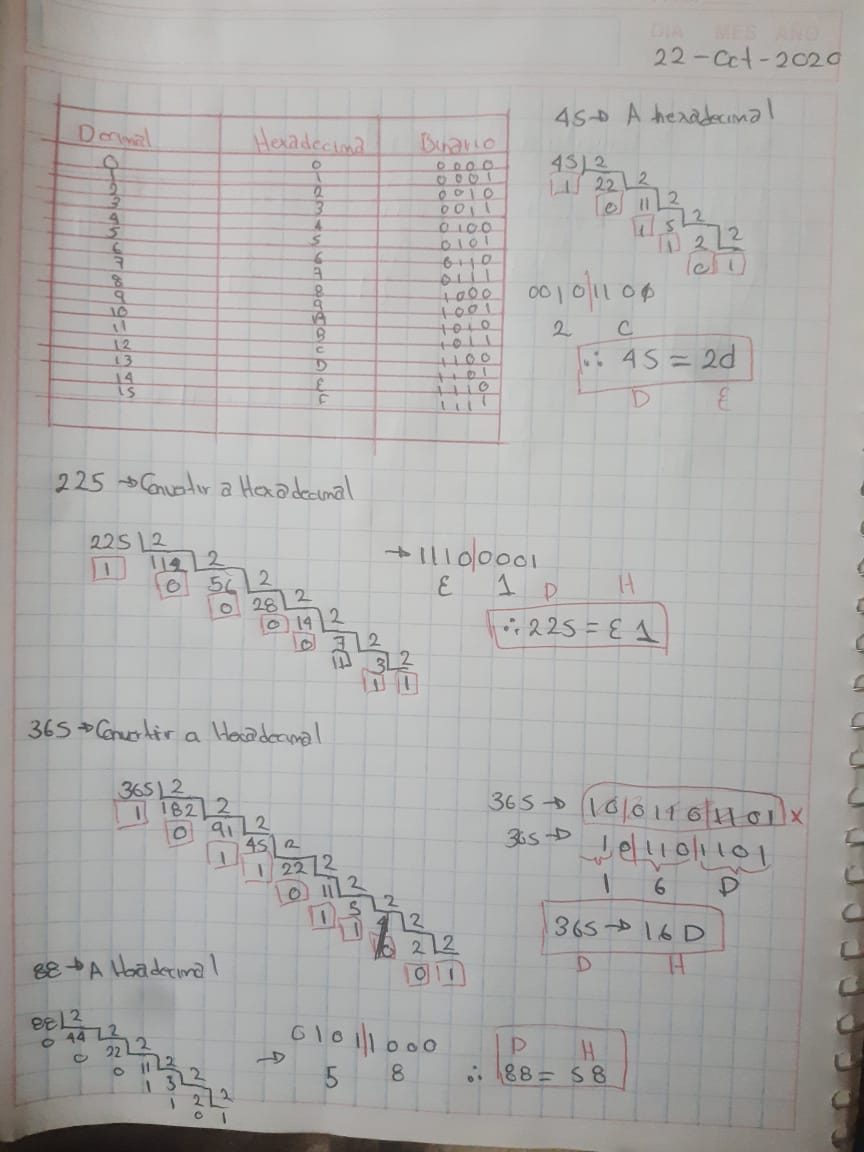 DIA MES AÑO
22-Oct-2020
Decimal Hexadecimal Binario
0 0 0000
1 1 0001
2 2 0010
3 3 0011
4 4 0100
5 5 0101
6 6 0110
7 7 0111
8 8 1000
9 9 1001
10 A 1010
11 B 1011
12 C 1100
13 D 1101
14 E 1110
15 F 1111
45→ A hexadecimal
45 2
1 22 2
0 11 2
1 5 2
1 2 2
0 1
0010|110
2 C
∴ 45 = 2d
D E
225 → Convertir a Hexadecimal
225 2
1 112 2
0 56 2
0 28 2
0 14 2
0 7 2
1 3 2
1 1
→ 1110|0001
E 1
D H
∴ 225 = E1
365 → Convertir a Hexadecimal
365 2
1 182 2
0 91 2
1 45 2
1 22 2
0 11 2
1 5 2
1 2
2 2
0 1
365 → 10|0110|1101 x
365 → 1 0110|1101
1 6 D
365 → 16D
D H
88 → A Hexadecimal
88 2
0 44 2
0 22 2
0 11 2
1 3 2
1 2 2
0 1
→ 0101|1000
5 8
D H
∴ 88 = 58